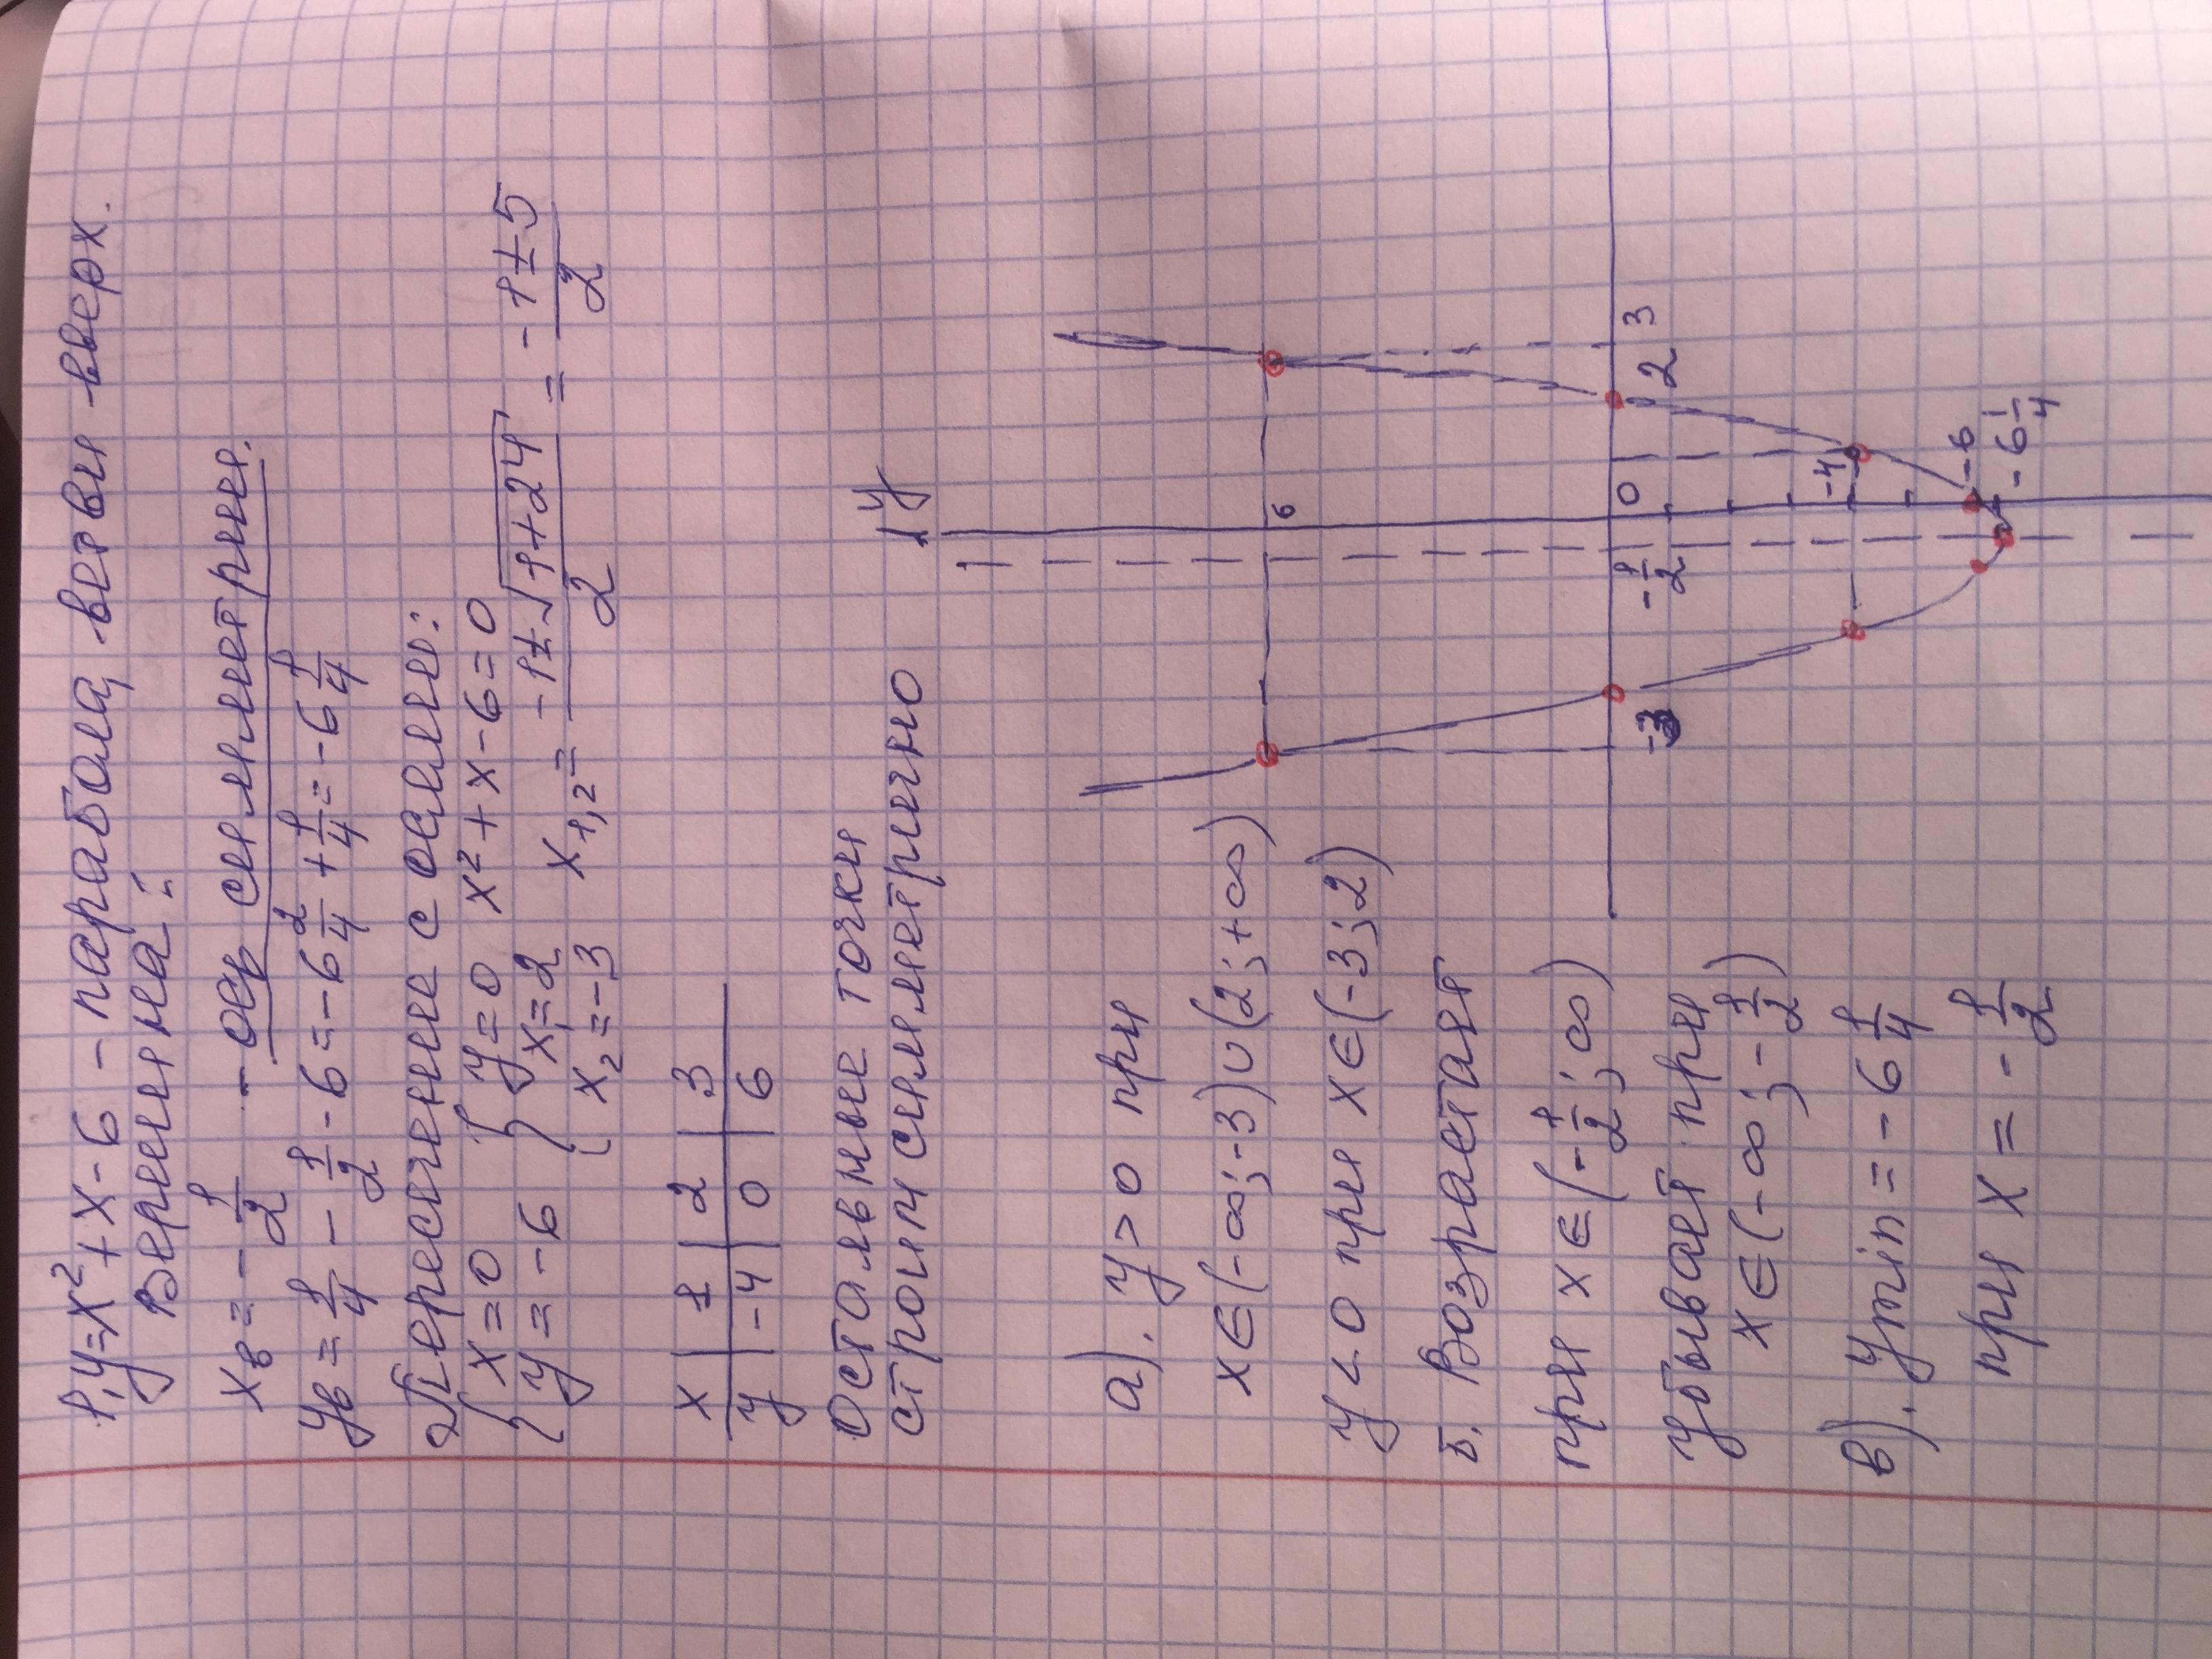 1, y=x²+x-6 - парабола, ветви вверх.
Вершина:
xв = -1/2 - ось симметрии.
yв = 1/4 - 1/2 - 6 = -6 2/4 + 1/4 = -6 1/4
Пересечение с осями:
{ x=0 { y=0 x²+x-6=0
{ y=-6 { x₁=2 x₁,₂ = (-1±√(1+24))/2 = (-1±5)/2
{ x₂=-3
x | 1 | 2 | 3
y | -4 | 0 | 6
Остальные точки
строим симметрично
y
6
-3
-1/2
0
2
3
-4
-6
-6 1/4
а). y>0 при
x∈(-∞;-3)∪(2;+∞)
y<0 при x∈(-3;2)
б. Возрастает
при x∈(-1/2;∞)
убывает при
x∈(-∞;-1/2)
в). ymin = -6 1/4
при x = -1/2